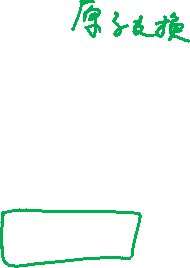 原子交换